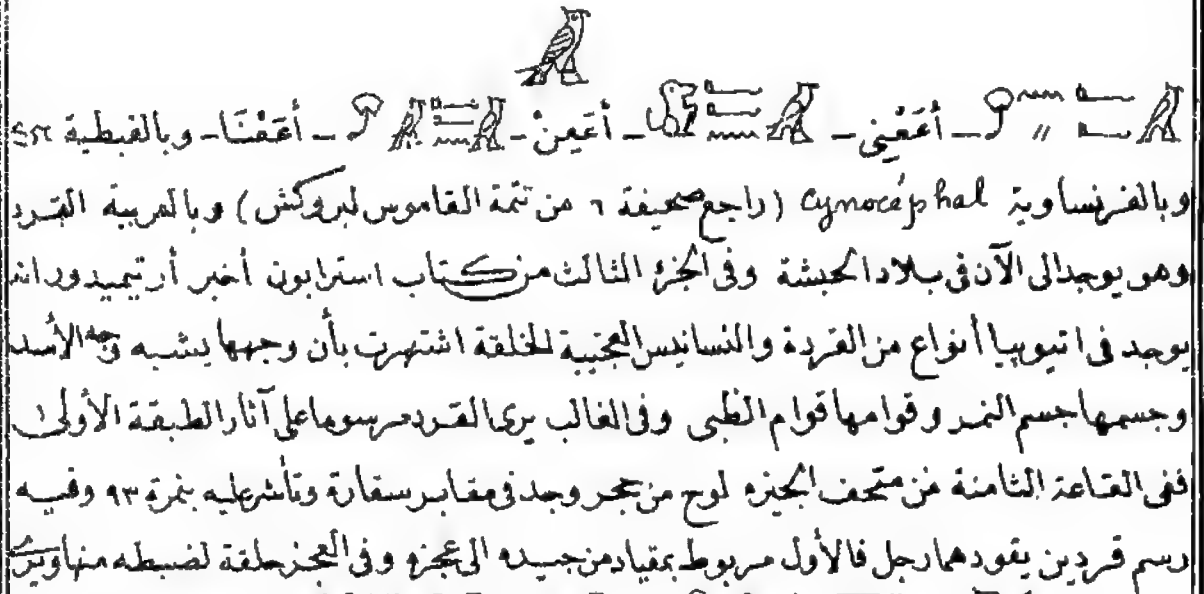 𓅃
𓄿 𓂝 𓂝 𓈖 𓏭 – أَعَعْنِى – 𓄿 𓂝 𓂝 𓈖 – أَعَعِنْ – 𓄿 𓂝 𓂝 𓈖 𓄿 – أَعَعْنَا – وبالقبطية
وبالفرنساوية cynocéphal (راجع صحيفة ٦ من تتمة القاموس لبروكش) وبالعربية القرد
وهو يوجد الى الآن فى بلاد الحبشة وفى الجزء الثالث من كتاب استرابون أخبر أرتيميدور انه
يوجد فى اتيوبيا أنواع من القردة والنسانيس العجيبة الخلقة اشتهرت بأن وجهها يشبه وجه الأسد
وجسمها جسم النمر وقوامها قوام الظبى وفى الغالب يرى القرد مرسوما على آثار الطبقة الأولى
ففى القاعة الثامنة من متحف الجيزه لوح من حجر وجد فى مقابر سقارة وتأشر عليه بنمرة ٩٣ وفيه
رسم قردين يقودهما رجل فالأول مربوط بمقياد من جيده الى عجزه وفى العجز حلقة لضبطه منها ويرى